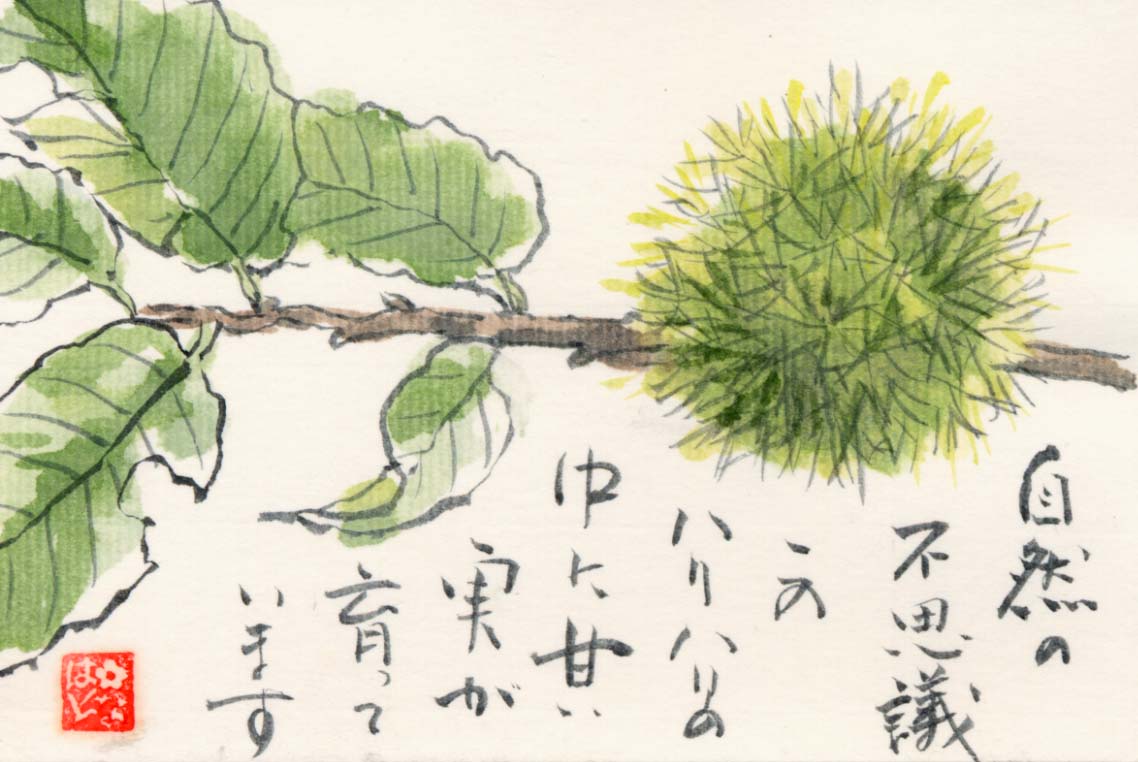 自然の
不思議
この
ハリハリの
中に甘い
実が
育って
います